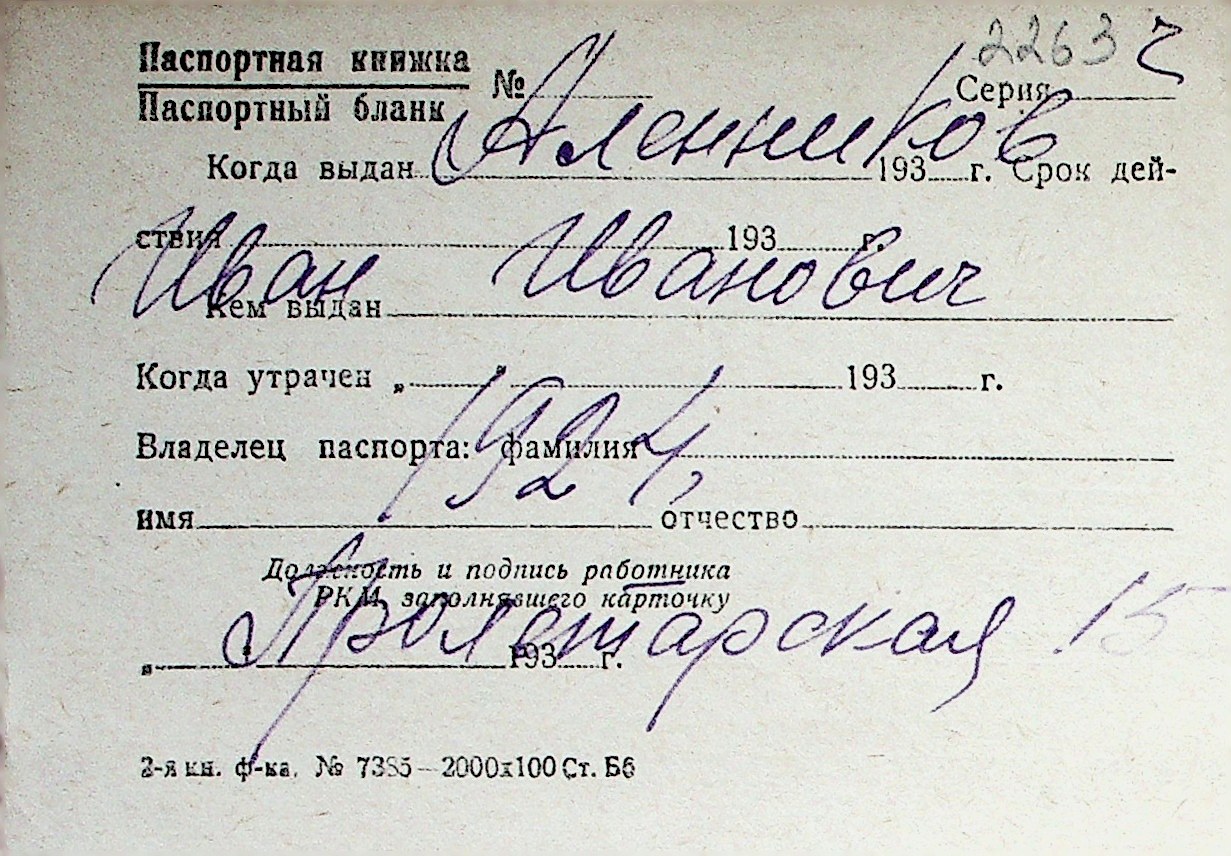 2263 ч
Паспортная книжка
Паспортный бланк
№ Серия
Аленников
Когда выдан 193 г. Срок дей-
ствия 193 г.
Иван Иванович
Кем выдан
Когда утрачен „ " 193 г.
1924,
Владелец паспорта: фамилия
имя отчество
Должность и подпись работника
РКМ, заполнявшего карточку
Пролетарская 15
„ " 193 г.
2-я кн. ф-ка. № 7385—2000х100 Ст. Б6